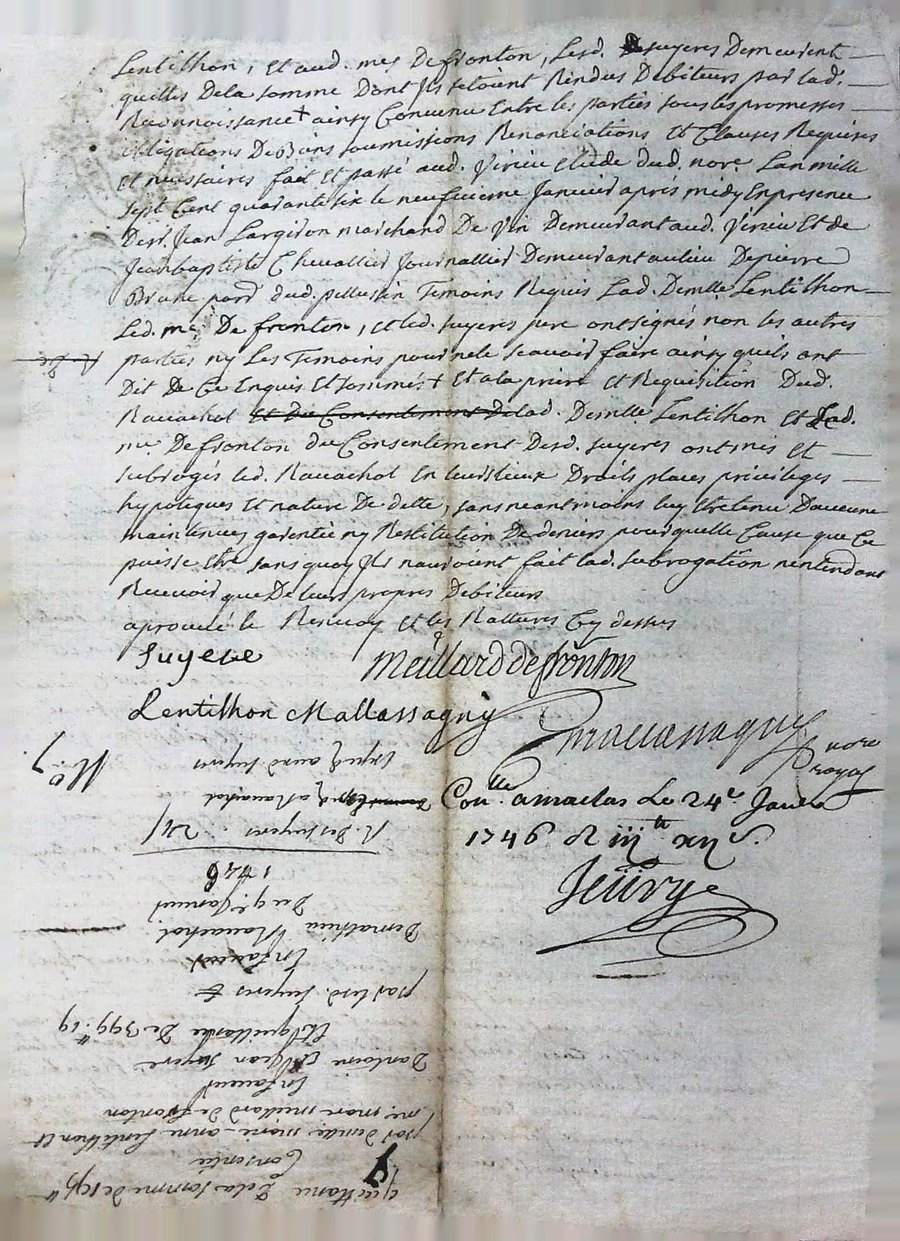 Lentilhon, Et aud. mes. De fronton, Lesd. Suyeres Demeurent
quittes De la somme Dont Ils setoint Rendus Debiteurs par lad.
Reconnoissance + ainsy Convenu Entre les parties sous les promesses
obligations De Biens soumissions Renonciations Et Clauses Requises
Et necessaires fait Et passé aud. Virieu Etude dud. nore. Lan mille
sept Cent quarante six le neufvieme Janvier aprés midy En presence
De sr. Jean Largiron marchand De Vin Demeurant aud. Virieu Et de
Jean baptiste Chevallier Journallier Demeurant au lieu De pierre
Brune parr. dud. pellussin Temoins Requis Lad. Demlle. Lentilhon
Led. me. De fronton, et led. suyeres pere ont signés non les autres
parties ny Les Temoins pour ne le scavoir faire ainsy quils ont
Dit De Ce Enquis Et sommés + Et a la priere Et Requisition Dud.
Ravachol Et du Consentement De lad. Demlle. Lentilhon Et Dud.
me. De fronton du Consentement Desd. suyeres ont mis Et
subrogés led. Ravachol En leurs lieux Droits places privileges
hypoteques Et nature De dette, sans neantmoins luy Etre tenu Daucune
maintenue garentie ny Restitution De deniers pour quelle Cause que Ce
puisse Etre sans quoy Ils nauroint fait lad. subrogation nentendant
Recevoir que De leurs propres Debiteurs
aprouvé le Renvoy Et les Rattures Cy dessus
Suyere Meillard de fronton
Lentilhon Mallassagny
Mallassagny nore royal
Conlle. a maclas Le 24e. Janv.
1746
No. 7
Expié. aux d. suyeres
a Ravachol
R. des suyeres
1746
Du 9e. Janvier
De mathieu Ravachol
En faveur
par lesd. suyeres
Et quittance De 399tt. 19
Dantoine Et Jean suyere
En faveur
me. marc meillard de fronton
par demlle. marie anne Lentilhon et
Consentie
quittance De la somme de